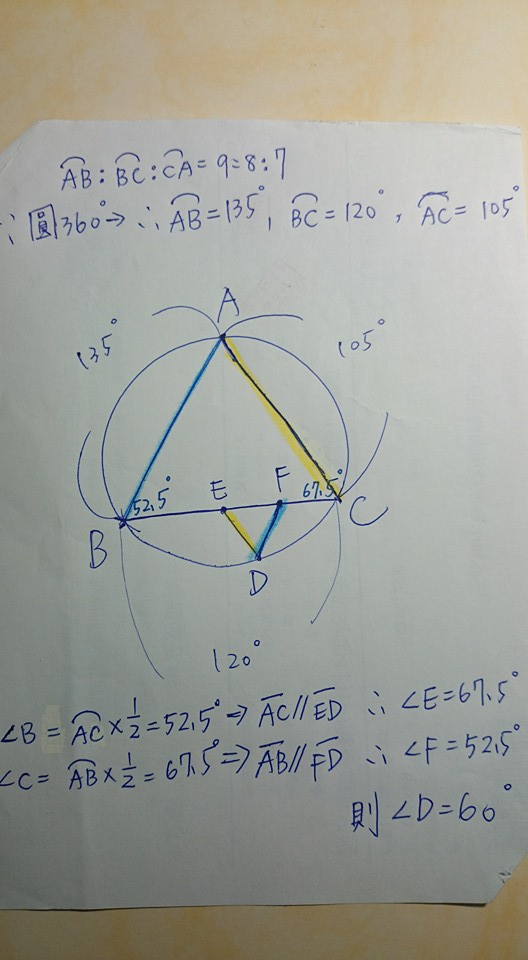 A͡B:B͡C:C͡A=9=8:7
∵圓360°→∴A͡B=135°, B͡C=120°, A͡C=105°
A
135°
105°
52.5°
E
F
67.5°
B
C
D
120°
∠B=A͡C×1/2=52.5°⇒A̅C̅//E̅D̅ ∴∠E=67.5°
∠C=A͡B×1/2=67.5°⇒A̅B̅//F̅D̅ ∴∠F=52.5°
則∠D=60°